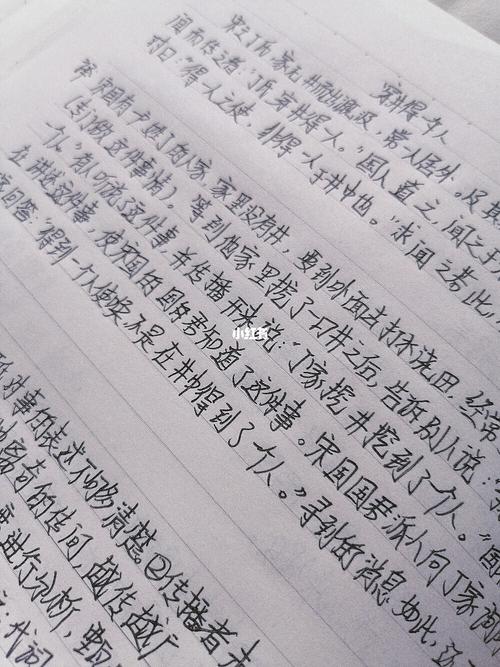 穿井得一人
宋之丁氏,家无井而出溉汲,常一人居外。及其
闻而传之者:"丁氏穿井得一人。"国人道之,闻之于
对曰:"得一人之使,非得一人于井中也。"求闻之若此,
译:宋国有一户姓丁的人家,家里没有井,要到外面去打水浇田,经常
(专门做这件事情)。等到他家里挖了一口井之后,告诉别人说:
个人"有人听说了这件事,并传播开来说:"丁家挖井挖到了一个人。"国
在讲述这件事,使宋国的国君知道了这件事。宋国国君派人向丁家询
回答:"得到一个人使唤,不是在井中得到了一个人。"寻到的消息如此,
对事的表述不够清楚②传播者未
有的传闻,越传越广
进行分析,
代词
小红书